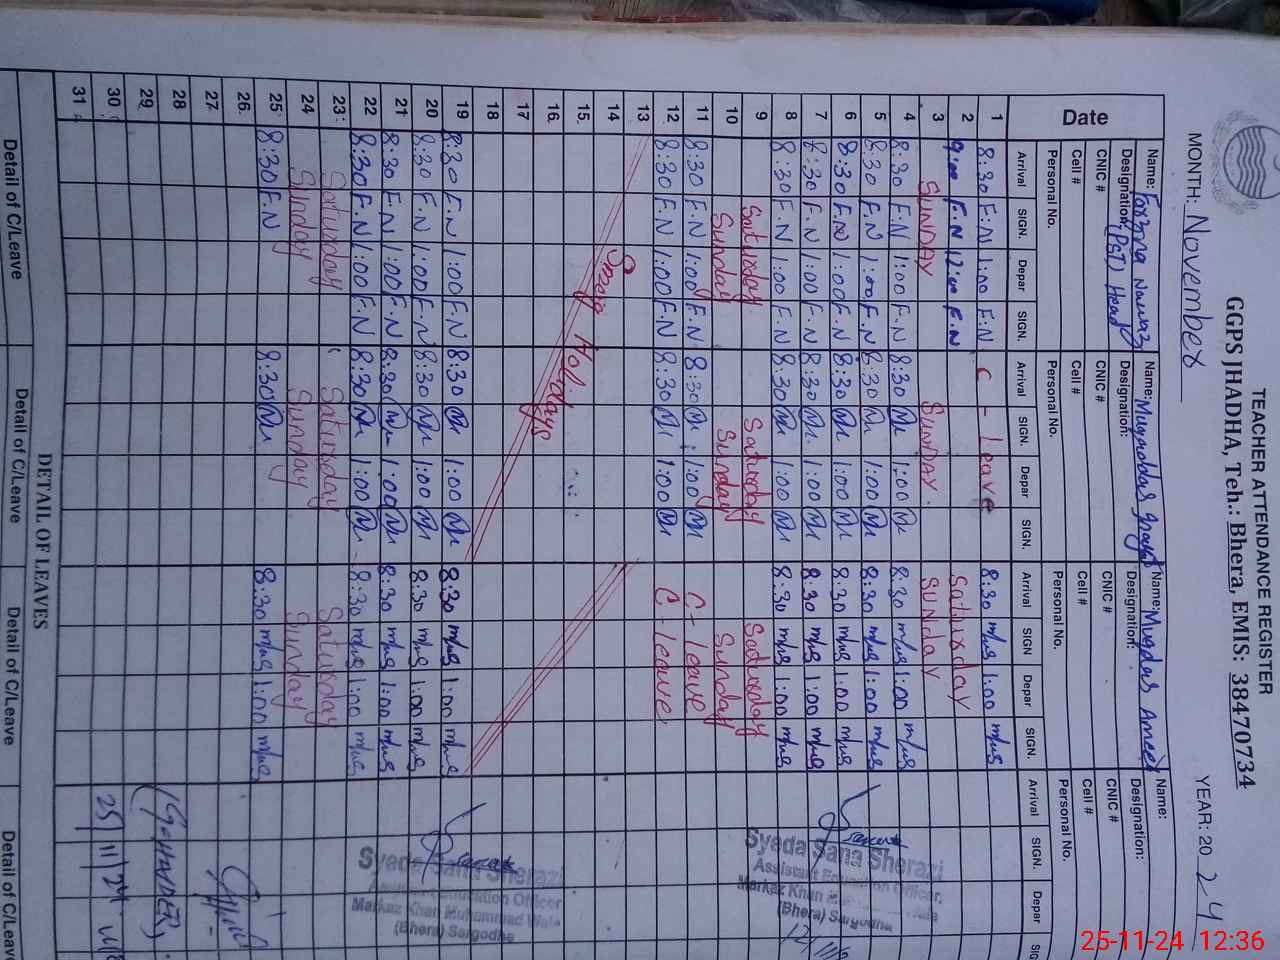 TEACHER ATTENDANCE REGISTER
GGPS JHADHA, Teh.: Bhera, EMIS: 38470734
MONTH: November YEAR: 2024
Date
Name: Farzana Nawaz Name: Muqaddas Name: Muqdas Ameer Name:
Designation: (PST) Head Designation: Designation: Designation:
CNIC # CNIC # CNIC # CNIC #
Cell # Cell # Cell # Cell #
Personal No. Personal No. Personal No. Personal No.
Arrival SIGN. Depar SIGN. Arrival SIGN. Depar SIGN. Arrival SIGN Depar SIGN. Arrival SIGN. Depar
1 8:30 F.N 1:00 F.N C - Leave 8:30 m/us 1:00 m/us
2 9:00 F.N 12:00 F.N Saturday
3 SUNDAY SUNDAY. SUNday
4 8:30 F.N 1:00 F.N 8:30 1:00 8:30 m/us 1:00 m/us
5 8:30 F.N 1:00 F.N 8:30 1:00 8:30 m/us 1:00 m/us
6 8:30 F.N 1:00 F.N 8:30 1:00 8:30 m/us 1:00 m/us
7 8:30 F.N 1:00 F.N 8:30 1:00 8:30 m/us 1:00 m/us
8 8:30 F.N 1:00 F.N 8:30 1:00 8:30 m/us 1:00 m/us
9 Saturday Saturday Saturday
10 Sunday Sunday Sunday
11 8:30 F.N 1:00 F.N 8:30 1:00 C - leave
12 8:30 F.N 1:00 F.N 8:30 1:00 C - leave
13
14
15
16
17
18
Smog Holidays
19 8:30 F.N 1:00 F.N 8:30 1:00 8:30 m/us 1:00 m/us
20 8:30 F.N 1:00 F.N 8:30 1:00 8:30 m/us 1:00 m/us
21 8:30 F.N 1:00 F.N 8:30 1:00 8:30 m/us 1:00 m/us
22 8:30 F.N 1:00 F.N 8:30 1:00 8:30 m/us 1:00 m/us
23 Saturday Saturday Saturday
24 Sunday Sunday Sunday
25 8:30 F.N 8:30 8:30 m/us 1:00 m/us
26
27
28
29
30
31
Syeda Sana Sherazi
Assistant Education Officer,
Markaz Khan
(Bhera) Sargodha
Syeda Sana Sherazi
Assistant Education Officer
Markaz Khan Muhammad Wala
(Bhera) Sargodha
25/11/24
DETAIL OF LEAVES
Detail of C/Leave Detail of C/Leave Detail of C/Leave Detail of C/Leave
25-11-24 12:36